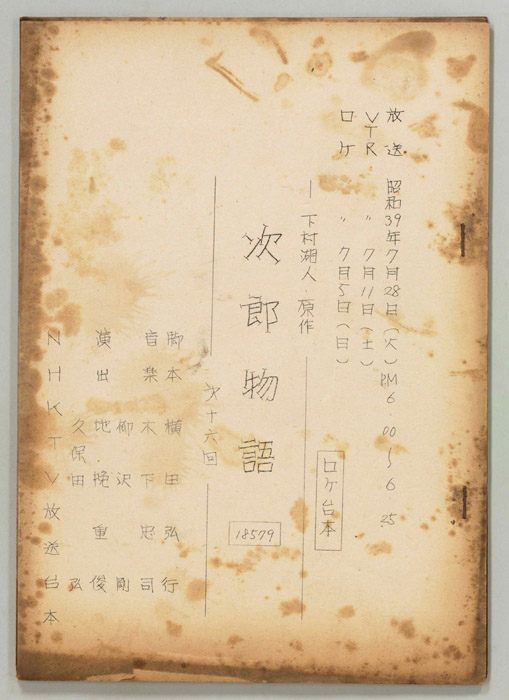 放送 昭和39年7月28日(火)PM6.00~6.25
VTR 〃 7月11日(土)
ロケ 〃 7月5日(日)
ロケ台本
― 下村湖人・原作
次郎物語
18579
第十六回
脚本 横田弘行
音楽 木下忠司
柳沢 剛
演出 地挽重俊
久保田 弘
NHKTV放送台本